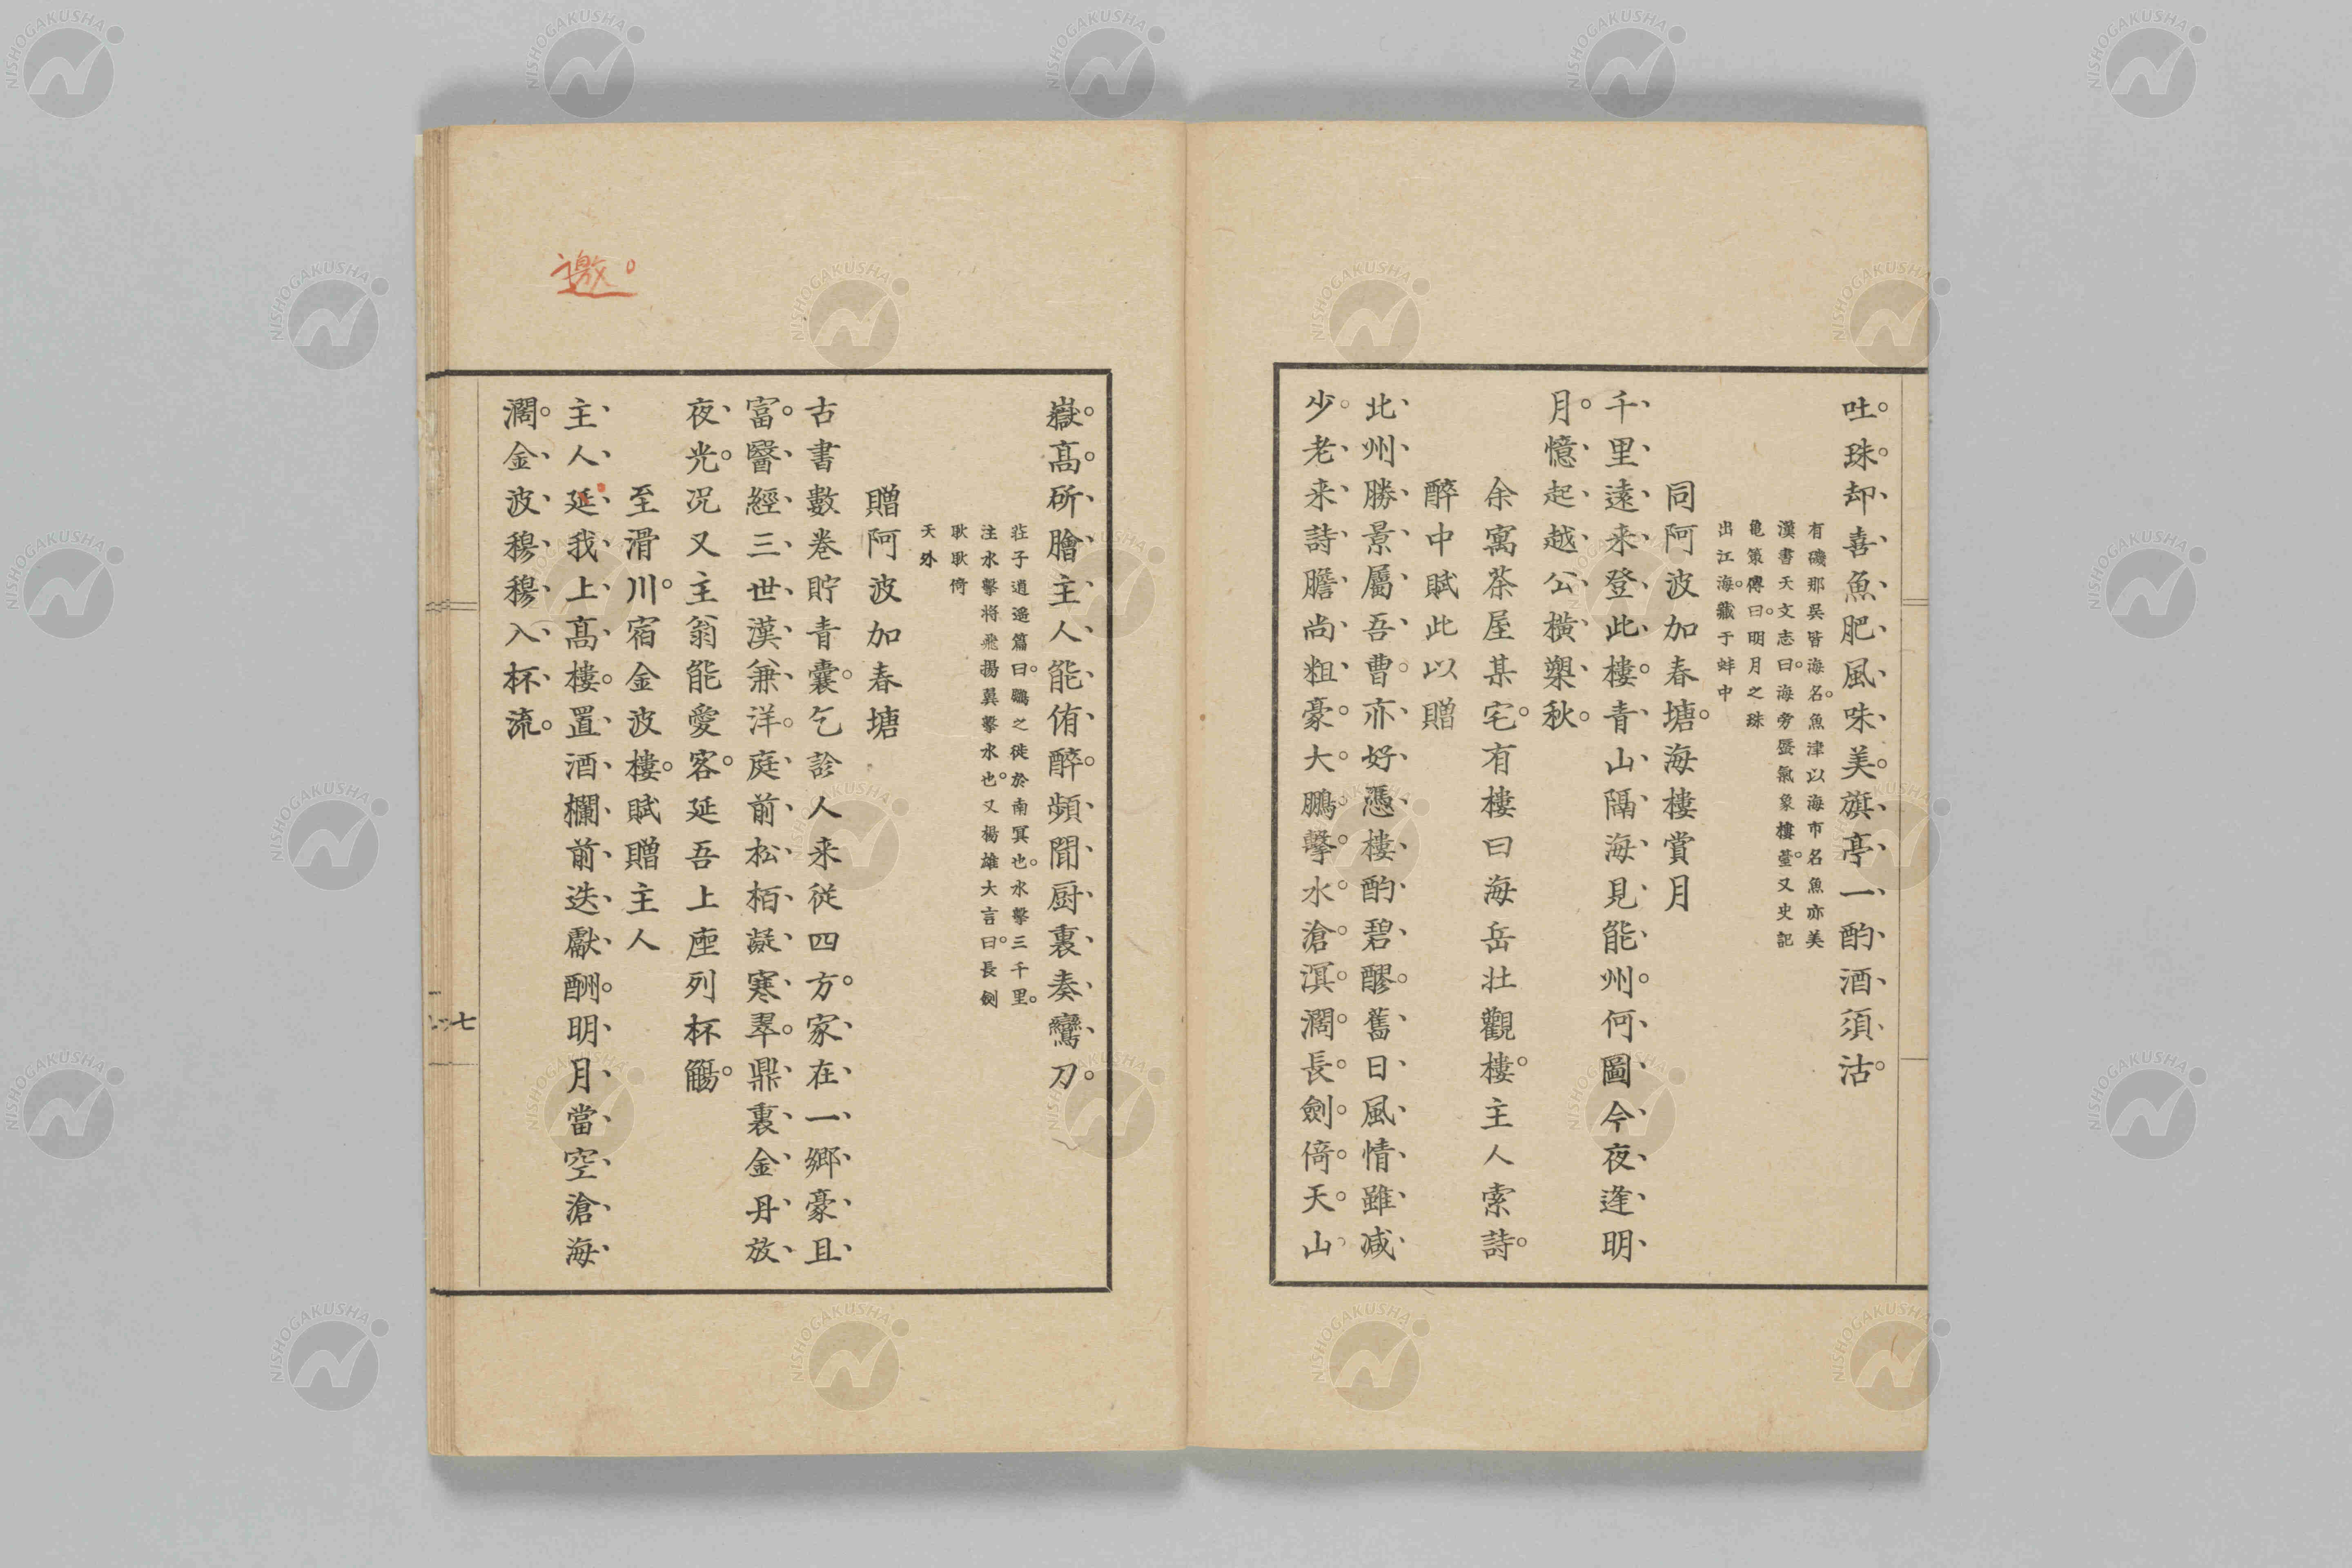 吐。珠。却、喜、魚、肥、風、味、美。旗、亭、一、酌、酒、須、沽。
有磯那呉皆海名。魚津以海市名魚亦美
漢書天文志曰。海旁蜃氣象樓䑓。又史記
龜策傳曰。明月之珠
出江海。藏于蚌中
同阿波加春塘。海樓賞月
千、里、遠、来、登、此、樓。青、山、隔、海、見、能、州。何、圖、今、夜、逢、明、
月。憶、起、越、公、橫、槊、秋。
余寓茶屋某宅。有樓曰海岳壮觀樓。主人索詩。
醉中賦此以贈
北、州、勝、景、屬、吾、曹。亦、好、憑、樓、酌、碧、醪。舊、日、風、情、雖、减、
少。老、来、詩、膽、尚、粗、豪。大。鵬。擊。水。滄。溟。濶。長。劍。倚。天。山。
嶽。髙。斫、膾、主、人、能、侑、醉。頻、聞、厨、裏、奏、鸞、刀。
荘子逍遥篇曰。鵬之徙於南冥也。水擊三千里。
注水擊将飛揚翼擊水也。又揚雄大言曰。長劍
耿耿倚
天外
贈阿波加春塘
古書數巻貯青囊。乞診人来従四方。家、在、一、郷、豪、且、
富。醫、經、三、世、漢、兼、洋。庭、前、松、栢、凝、寒、翠。鼎、裏、金、丹、放、
夜、光。况又主翁能愛客。延吾上座列杯觴。
至滑川。宿金波樓。賦贈主人
主、人、延、我、上、髙、樓。置、酒、欄、前、迭、獻、酬。明、月、當、空、滄、海、
濶。金、波、穆、穆、入、杯、流。
邀。
七
NISHOGAKUSHA